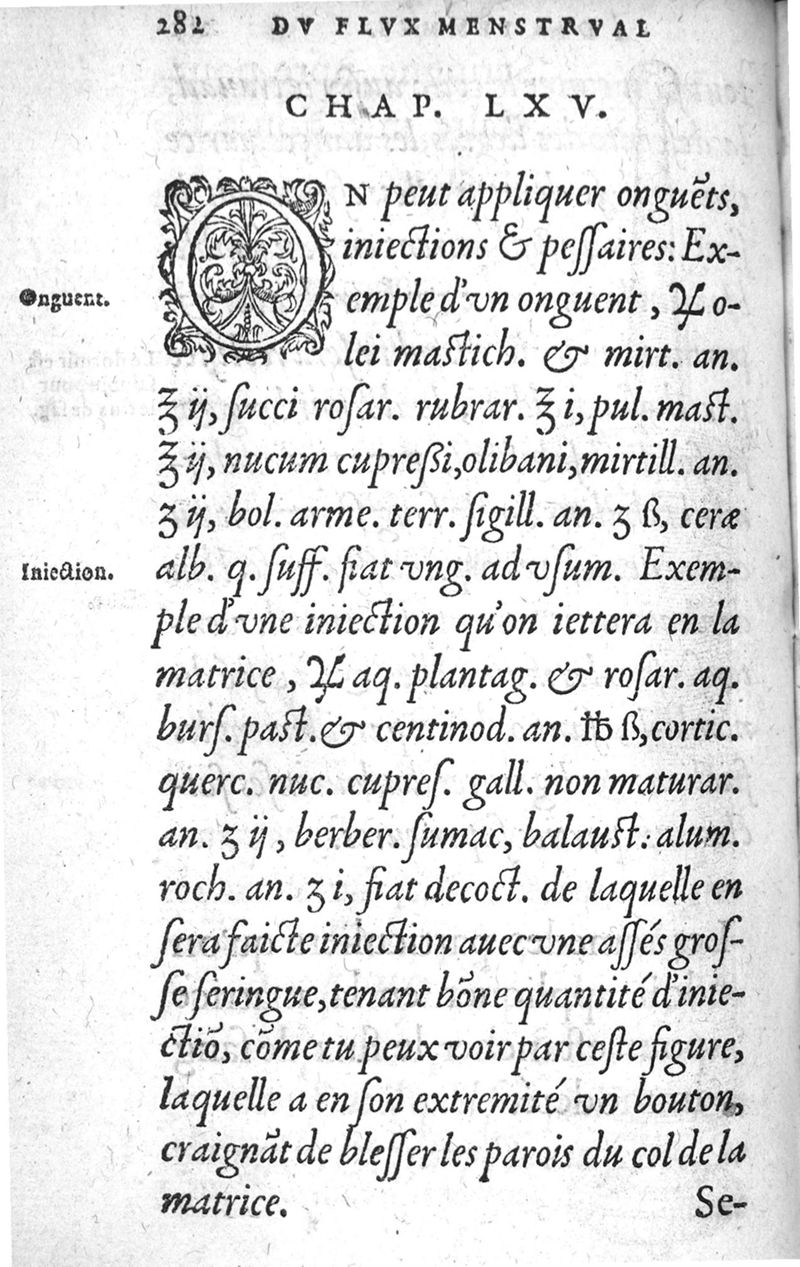 282 DV FLVX MENSTRVAL
CHAP. LXV.
ON peut appliquer onguẽts,
iniections & peſſaires: Ex-
emple d'vn onguent, ♃ o-
lei maſtich. & mirt. an.
℥ ij, ſucci roſar. rubrar. ℥ i, pul. maſt.
℥ ij, nucum cupreßi, olibani, mirtill. an.
ʒ ij, bol. arme. terr. ſigill. an. ʒ ß, ceræ
alb. q. ſuff. fiat vng. ad vſum. Exem-
ple d'vne iniection qu'on iettera en la
matrice, ♃ aq. plantag. & roſar. aq.
burſ. paſt. & centinod. an. ℔ ß, cortic.
querc. nuc. cupreſ. gall. non maturar.
an. ʒ ij, berber. ſumac, balauſt: alum.
roch. an. ʒ i, fiat decoct. de laquelle en
ſera faicte iniection auec vne aſſés groſ-
ſe ſeringue, tenant bõne quantité d'inie-
ctiõ, cõme tu peux voir par ceſte figure,
laquelle a en ſon extremité vn bouton,
craignãt de bleſſer les parois du col de la
matrice. Se-
Onguent.
Iniection.